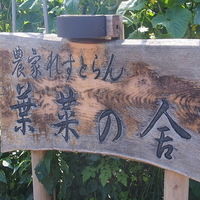 農家れすとらん
葉菜の舎